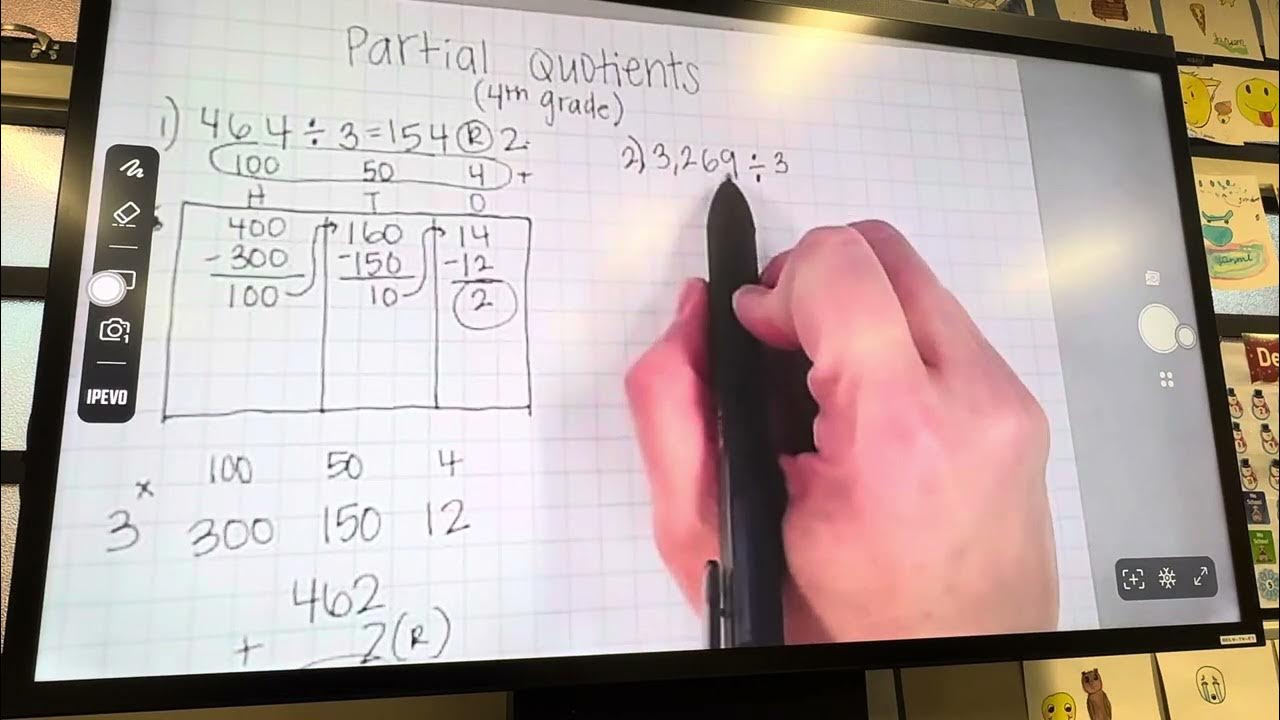 Partial Quotients
(4th grade)
1) 464 ÷ 3 = 154 R 2
100 50 4 +
H T O
400 160 14
-300 -150 -12
100 10 2
x 100 50 4
3 300 150 12
462
+ 2 (R)
2) 3,269 ÷ 3
IPEVO